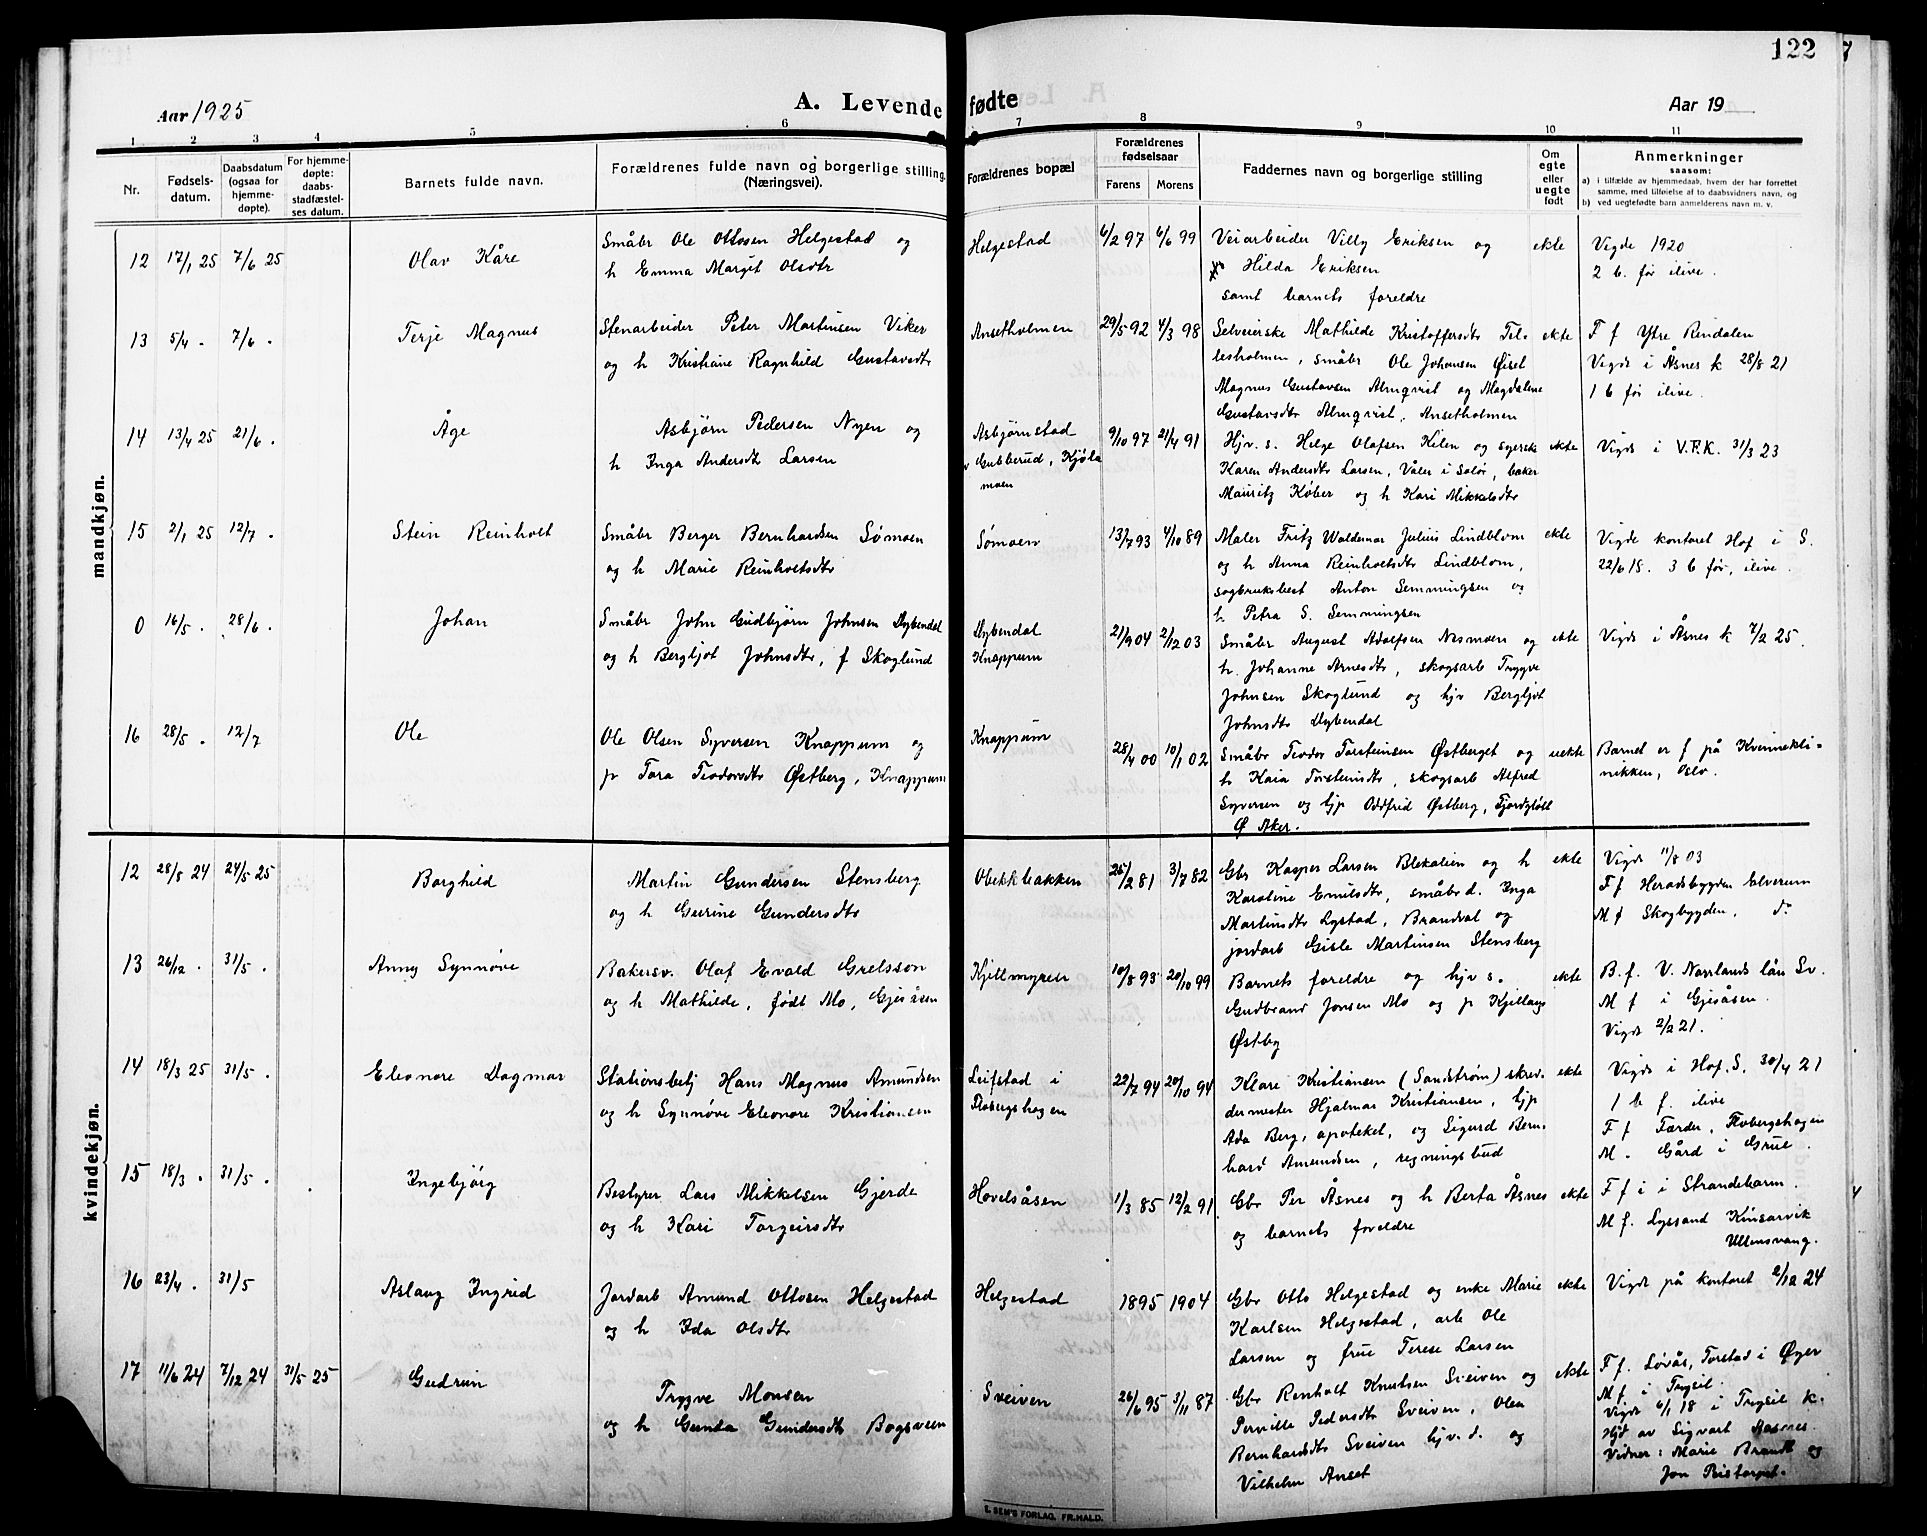 122
Aar 1925
A. Levende fødte
Aar 19
1 2 3 4 5 6 7 8 9 10 11
Nr.
Fødsels-
datum.
Daabsdatum
(ogsaa for
hjemme-
døpte).
For hjemme-
døpte:
daabs-
stadfæstel-
ses datum.
Barnets fulde navn.
Forældrenes fulde navn og borgerlige stilling.
(Næringsvei).
Forældrenes bopæl
Forældrenes
fødselsaar
Farens Morens
Faddernes navn og borgerlige stilling
Om
egte
eller
uegte
født
Anmerkninger
saasom:
a) i tilfælde av hjemmedaab, hvem der har forrettet
samme, med tilføielse af to daabsvidners navn, og
b) ved uegtefødte barn anmelderens navn m. v.
mandkjøn.
12 17/1 25 7/6 25 Olav Kåre
Småbr Ole Ottosen Helgestad og
h Emma Margit Olsdtr
Helgestad
6/2 97 6/6 99
Veiarbeider Villy Eriksen og
Hilda Eriksen
samt barnets foreldre
ekte
Vigde 1920
2 b. før ilive.
13 5/4 - 7/6 . Terje Magnus
Stenarbeider Peter Martinsen Viker
og h Kristiane Ragnhild Gustavsdtr
Ansetholmen
29/5 92 4/3 98
Selveierske Mathilde Kristoffersdtr Til-
lesholmen, småbr Ole Johansen Øiset
Magnus Gustavsen Almqvist og Magdalene
Gustavsdtr Almqvist, Ansetholmen
ekte
F f Ytre Rendalen
Vigde i Åsnes k 28/8 21
1 b før ilive.
14 13/4 25 21/6 . Åge
Asbjørn Pedersen Nyen og
h Inga Andersdtr Larsen
Asbjørnstad
v Gubberud, Kjøla
moen
9/10 97 21/4 91
Hjv. s. Helge Olafsen Kilen og syerske
Karen Andersdtr Larsen, Våler i Solør, baker
Mauritz Køber og h Kari Mikkelsdtr
ekte
Vigde i V.F.K. 31/3 23
15 2/1 25 12/7 . Stein Reinholt
Småbr Berger Bernhardsen Sømoen
og h Marie Reinholtsdtr
Sømoen
13/7 93 4/10 89
Maler Fritz Waldemar Julius Lindblom
og h Anna Reinholtsdtr Lindblom,
sagbruksbest Anton Semmingsen og
h Petra S. Semmingsen
ekte
Vigde kontoret Hof i S.
22/6 18. 3 b før, ilive.
0 16/5 . 28/6 . Johan
Småbr John Gudbjørn Johnsen Dybendal
og h Bergljot Johnsdtr, f Skoglund
Dybendal
Knappum
21/9 04 2/12 03
Småbr August Adolfsen Nesmoen og
h. Johanne Arnesdtr, skogsarb Trygve
Johnsen Skoglund og hjv Bergljot
Johnsdtr Dybendal
ekte
Vigde i Åsnes k 7/2 25.
16 28/5 . 12/7 Ole
Ole Olsen Syversen Knappum og
p Tora Teodorsdtr Østberg, Knappum
Knappum
28/4 00 10/1 02
Småbr Teodor Torsteinsen Østberget og
h Kaia Torsteinsdtr, skogsarb Alfred
Syversen og hjp Oddfrid Østberg, Fjordgløtt
Ø Aker.
uekte
Barnet er f på Kvinnekli-
nikken, Oslo.
kvindekjøn.
12 28/8 24 24/5 25 Borghild
Martin Gundersen Stensberg
og h Gurine Gundersdtr
Obekkbakken
25/2 81 3/7 82
Gbr Kasper Larsen Blekalien og h
Karoline Emilsdtr, småbr d. Inga
Martinsdtr Lystad, Brandval og
jordarb Gisle Martinsen Stensberg
ekte
Vigde 11/8 03
F f Heradsbygden Elverum
M f Skogbygden, do
13 26/12 . 31/5 . Anny Synnøve
Bakersv. Olaf Evald Grelsson
og h Mathilde, født Mo, Gjesåsen
Kjellmyren
10/8 93 20/10 99
Barnets foreldre og hjv s.
Gudbrand Jonsen Mo og p Kjellaug
Østby
ekte
B. f. V. Narrlands län Sv.
M f i Gjesåsen.
Vigde 2/2 21.
14 18/3 25 31/5 . Eleonore Dagmar
Stationsbetj Hans Magnus Amundsen
og h Synnøve Eleonore Kristiansen
Leifstad i
Flobergshagen
22/7 94 20/10 94
Klare Kristiansen (Sandstrøm) skred-
dermester Hjalmar Kristiansen, hjp
Ada Berg, apoteket, og Sigurd Bern-
hard Amundsen, regningsbud
ekte
Vigde i Hof. S. 30/4 21
1 b f. ilive
F f Færder, Flobergshagen
M. Gård i Grue.
15 18/3 . 31/5 . Ingebjörg
Bestyrer Lars Mikkelsen Gjerde
og h Kari Torgeirsdtr
Hovelsåsen
1/3 85 12/2 91
Gbr Per Åsnes og h Berta Åsnes
og barnets foreldre
ekte
F f i i Strandebarm.
M f. Lyssand Kinsarvik
Ullensvang.
16 23/4 . 31/5 Aslaug Ingrid
Jordarb Amund Ottosen Helgestad
og h Ida Olsdtr
Helgestad
1895 1904
Gbr Otto Helgestad og enke Marie
Karlsen Helgestad, arb Ole
Larsen og frue Terese Larsen
ekte
Vigde på kontoret 2/12 24
17 11/6 24 7/12 24 31/5 25 Gudrun
Trygve Monsen
og h Gunda Gundersdtr Bogsveen
Sveiven
26/6 95 3/11 87
Gbr Renholt Knutsen Sveiven og
Pernille Pedersdtr Sveiven, Olea
Bernhardsdtr Sveiven hjv. d. og
Vilhelm Anset
ekte
F f. Løvås, Torstad i Øyer
M f i Trysil.
Vigde 6/1 18 i Trysil k.
Hjd av Sigvart Aasnes.
Vidner: Marie Brandt og
Jon Ristorpet.
E. SEM'S FORLAG, FR.HALD.